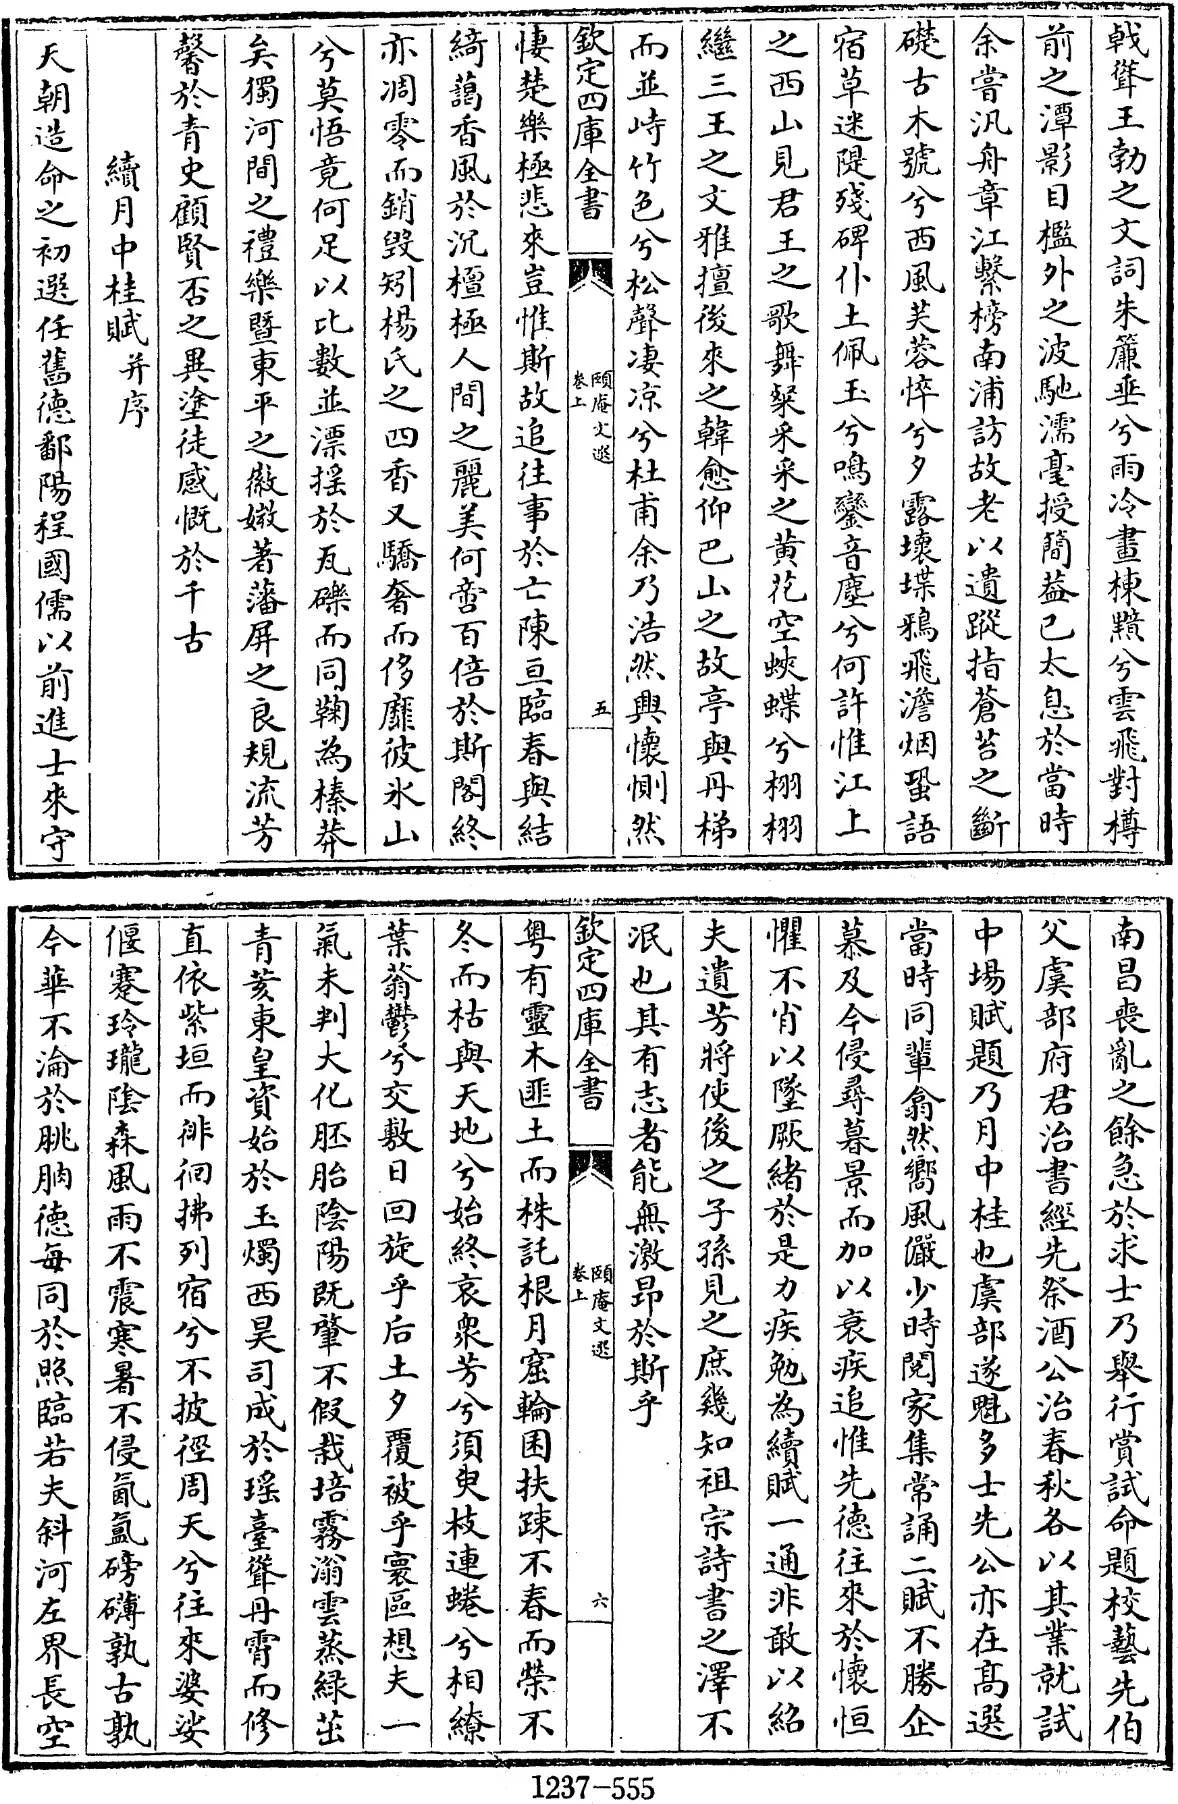 戟聳王勃之文詞朱簾垂兮雨冷畫棟黯兮雲飛對樽
前之潭影目檻外之波馳濡毫授簡蓋已太息於當時
余嘗汎舟章江繫榜南浦訪故老以遺蹤指蒼苔之斷
礎古木號兮西風芙蓉悴兮夕露壞堞鴉飛澹烟蛩語
宿草迷隄殘碑仆土佩玉兮鳴鑾音塵兮何許惟江上
之西山見君王之歌舞粲采采之黄花空蛺蝶兮栩栩
繼三王之文雅擅後來之韓愈仰巴山之故亭與丹梯
而並峙竹色兮松聲凄凉兮杜甫余乃浩然興懷惻然
欽定四庫全書
頤庵文選
卷上
五
悽楚樂極悲來豈惟斯故追往事於亡陳亘臨春與結
綺藹香風於沉檀極人間之麗美何啻百倍於斯閣終
亦凋零而銷毁矧楊氏之四香又驕奢而侈靡彼氷山
兮莫悟竟何足以比數並漂揺於瓦礫而同鞠為榛莽
矣獨河間之禮樂暨東平之徽媺著藩屏之良規流芳
馨於青史顧賢否之異塗徒感慨於千古
續月中桂賦并序
天朝造命之初選任舊德鄱陽程國儒以前進士來守
南昌喪亂之餘急於求士乃舉行賞試命題校藝先伯
父虞部府君治書經先祭酒公治春秋各以其業就試
中場賦題乃月中桂也虞部遂魁多士先公亦在髙選
當時同輩翕然嚮風儼少時閲家集常誦二賦不勝企
慕及今侵尋暮景而加以衰疾追惟先德往來於懷恒
懼不肖以墜厥緒於是力疾勉為續賦一通非敢以紹
夫遺芳將使後之子孫見之庶幾知祖宗詩書之澤不
泯也其有志者能無激昂於斯乎
欽定四庫全書
頤庵文選
卷上
六
粤有靈木匪土而株託根月窟輪囷扶踈不春而榮不
冬而枯與天地兮始終哀衆芳兮須臾枝連蜷兮相繚
葉蓊鬱兮交敷日回旋乎后土夕覆被乎寰區想夫一
氣未判大化胚胎陰陽既肇不假栽培霧滃雲蒸緑茁
青荄東皇資始於玉燭西昊司成於瑶臺聳丹霄而修
直依紫垣而徘徊拂列宿兮不披徑周天兮往來婆娑
偃蹇玲瓏陰森風雨不震寒暑不侵氤氲磅礴孰古孰
今華不淪於朓朒德每同於照臨若夫斜河左界長空
1237-555